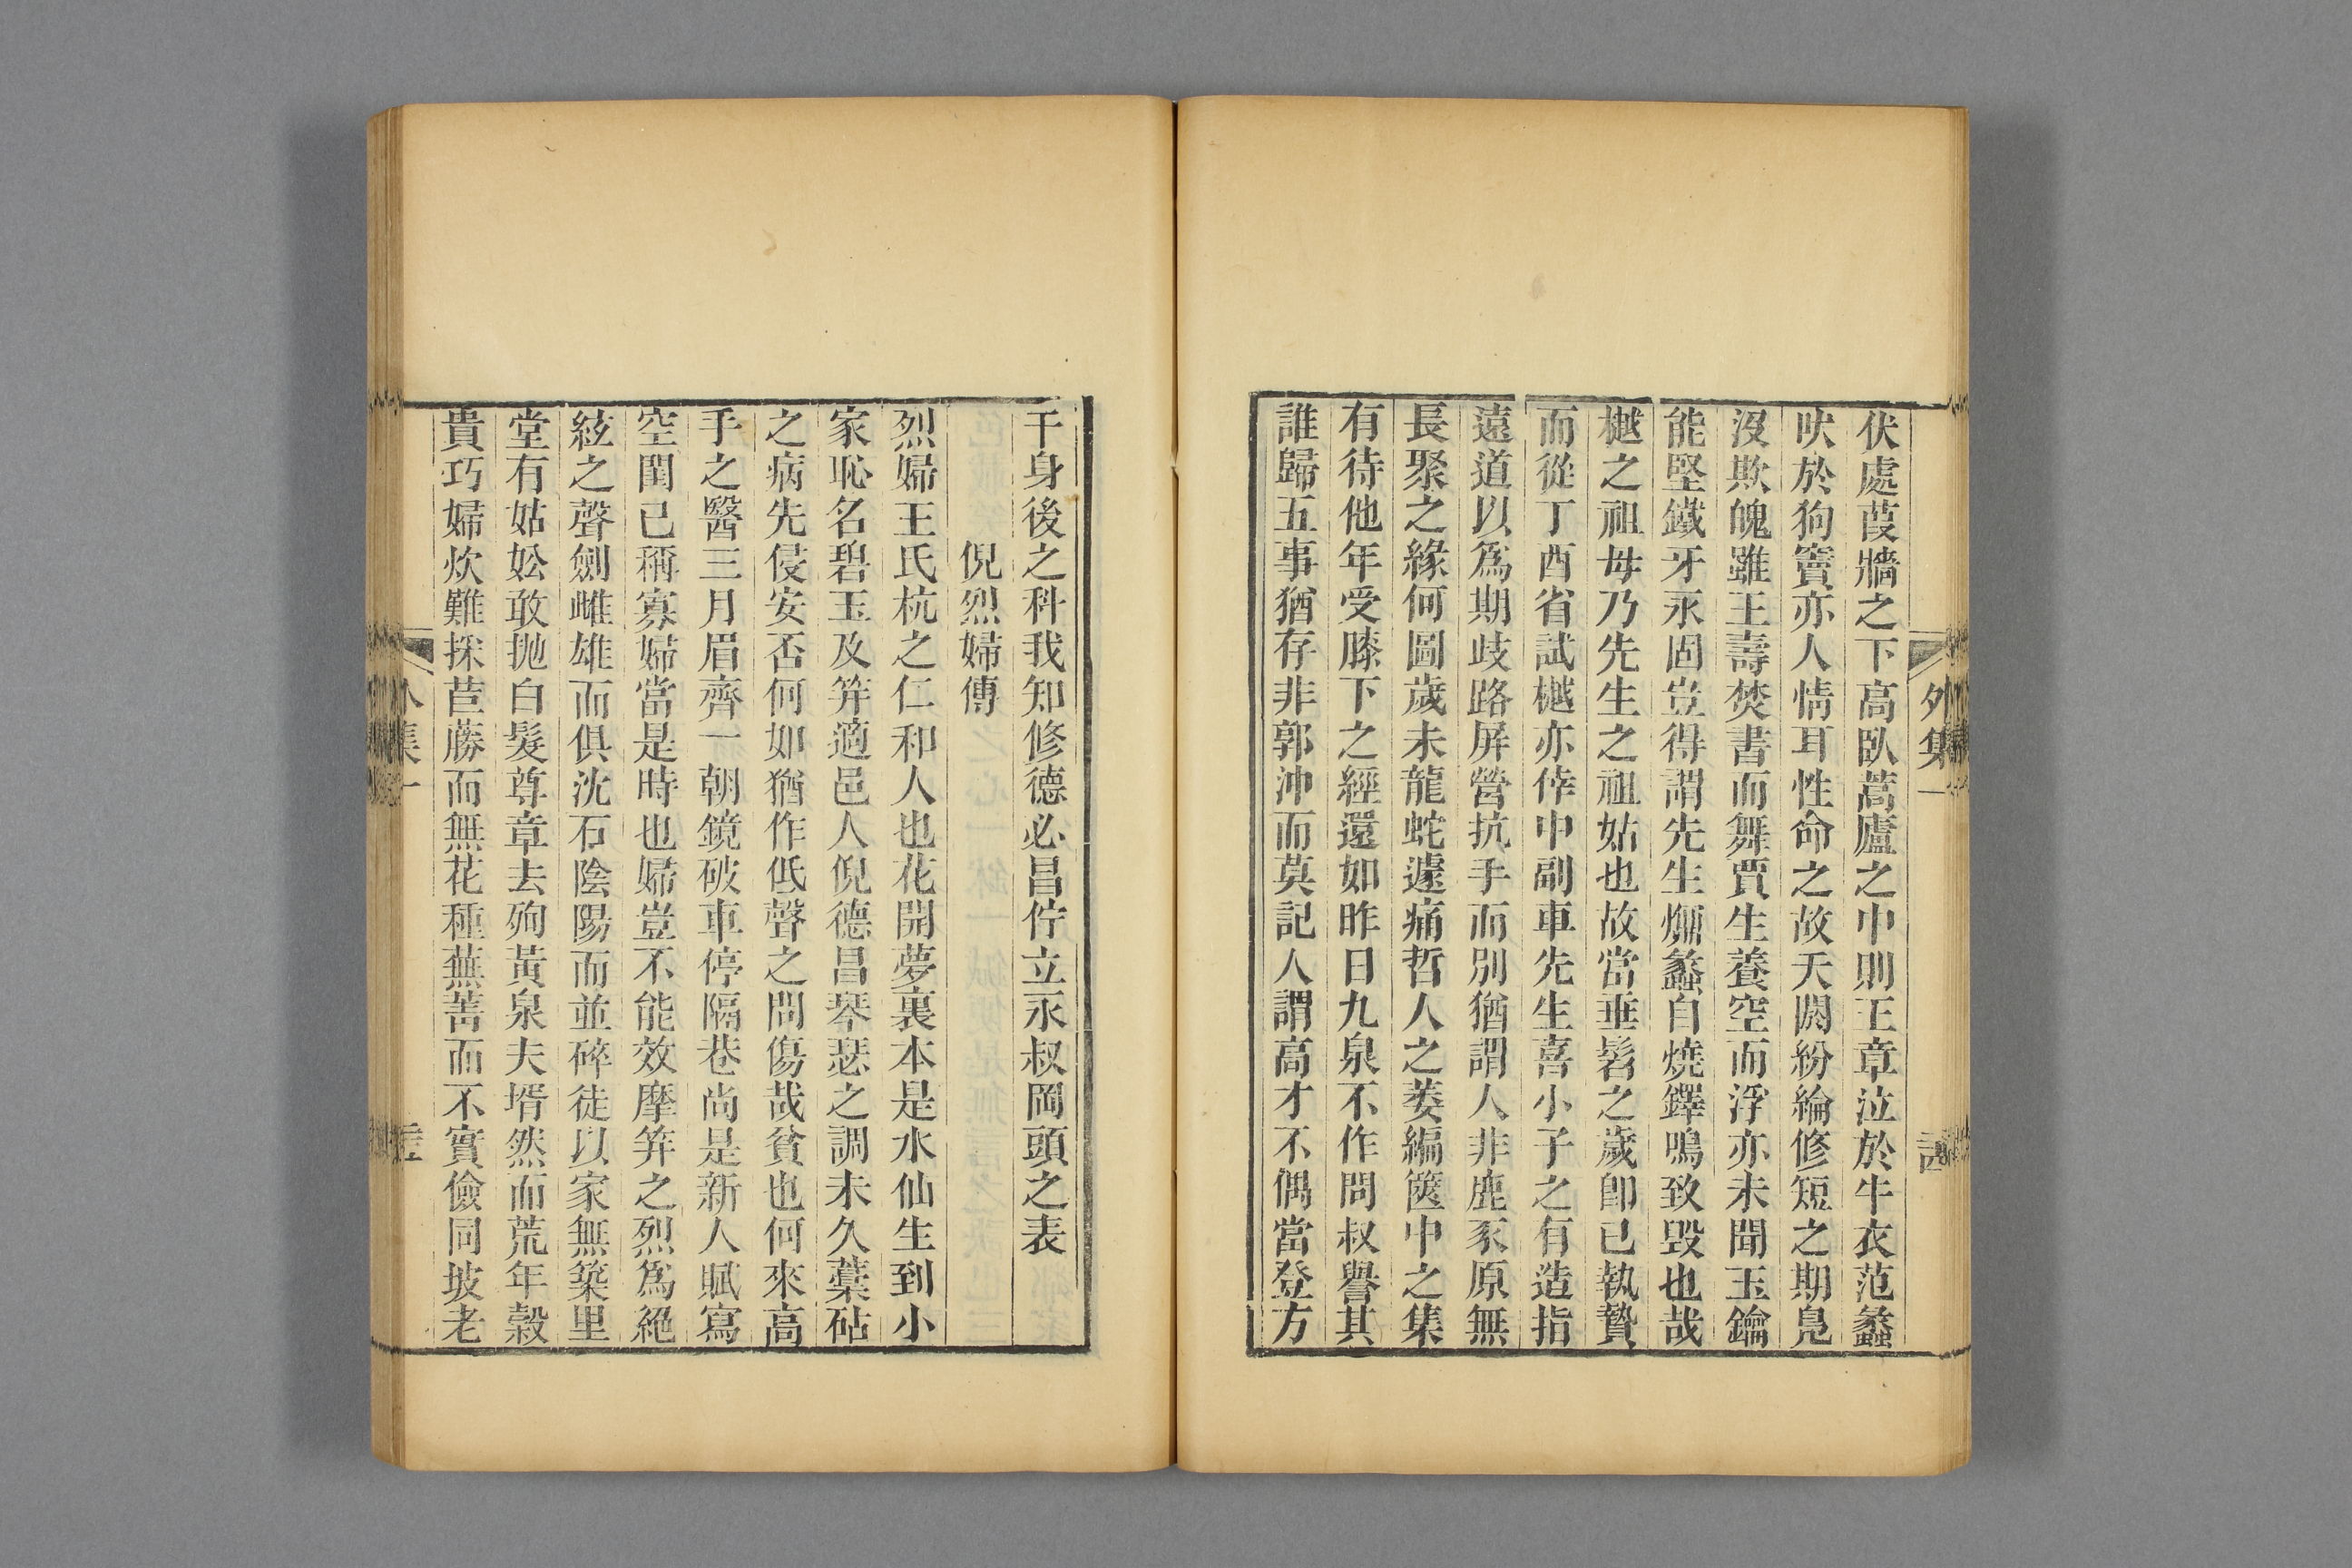 外集一
伏處葭牆之下高臥蒿廬之中則王章泣於牛衣范蠡
吠於狗竇亦人情耳性命之故天閼紛綸修短之期鳧
沒欺魄雖王壽焚書而舞賈生養空而浮亦未聞玉鑰
能堅鐵牙永固豈得謂先生爊蠡自燒鐸鳴致毀也哉
樾之祖母乃先生之祖姑也故當垂髫之歲卽已執贄
而從丁酉省試樾亦倖中副車先生喜小子之有造指
遠道以爲期歧路屏營抗手而別猶謂人非鹿豕原無
長聚之緣何圖歲未龍蛇遽痛哲人之萎編篋中之集
有待他年受膝下之經還如昨日九泉不作問叔譽其
誰歸五事猶存非郭沖而莫記人謂高才不偶當登方
干身後之科我知修德必昌佇立永叔岡頭之表
倪烈婦傳
烈婦王氏杭之仁和人也花開夢裏本是水仙生到小
家恥名碧玉及笄適邑人倪德昌琴瑟之調未久藁砧
之病先侵安否何如猶作低聲之問傷哉貧也何來高
手之醫三月眉齊一朝鏡破車停隔巷尚是新人賦寫
空閨已稱寡婦當是時也婦豈不能效摩笄之烈爲絕
絃之聲劍雌雄而俱沈石陰陽而並碎徒以家無築里
堂有姑妐敢拋白髮尊章去殉黃泉夫壻然而荒年穀
貴巧婦炊難採苣蕂而無花種蕪菁而不實儉同坡老
外集一